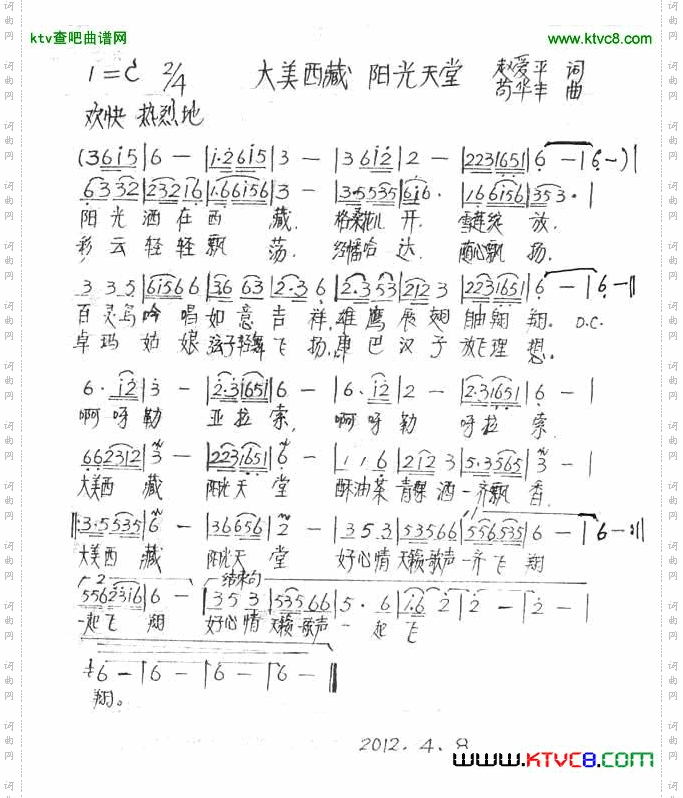 ktv查吧曲谱网
www.ktvc8.com
1=C 2/4 大美西藏 阳光天堂 赵爱平 词
苟华丰 曲
欢快 热烈地
(3 6 i 5 | 6 - | i·2 6 i 5 | 3 - | 3 6 i 2 | 2 - | 2 2 3 1 6 5 1 | 6 - | 6 - ) |
6 3 3 2 | 2 3 2 1 6 | 1·6 6 1 5 6 | 3 - | 3·5 5 3 5 | 6 i 6 · | 1 6 6 1 5 6 | 3 5 3 · |
阳光洒在西 藏. 格桑花儿 开. 雪莲绽 放.
彩云轻轻飘 荡. 经幡哈 达. 随心飘 扬.
3 3 5 | 6 i 5 6 6 | 3 6 6 3 | 2·3 6 | 2·3 5 3 | 2 1 2 3 | 2 2 3 1 6 5 1 | 6 - | 6 - ‖
百灵鸟吟唱如意吉祥,雄鹰展翅自由翱翔. D.C.
卓玛姑娘弦子轻舞飞扬,康巴汉子放飞理想。
6· i 2 | 3 - | 2·3 1 6 5 1 | 6 - | 6· i 2 | 2 - | 2·3 1 6 5 1 | 6 - |
啊呀勒 亚拉索, 啊呀勒 呀拉索.
6 6 2 3 1 2 | 3 - | 2 2 3 1 6 5 1 | 6 - | 1 1 6 | 2 1 2 3 | 5·3 5 6 5 | 3 - |
大美西 藏 阳光天 堂 酥油茶青稞酒一齐飘香.
‖: 3·5 5 3 5 | 6 - | 3 6 6 5 6 | 2 - | 3 5 3 | 5 3 5 6 6 | 5 5 6 5 3 5 | 6 - | 6 - :‖
大美西 藏 阳光天 堂 好心情天籁歌声一齐飞翔
2 结束句
5 5 6 2 3 1 6 | 6 - | 3 5 3 | 5 3 5 6 6 | 5 · 6 | i·6 2 | 2 - | 2 - |
一起飞 翔 好心情天籁歌声 一 起飞
6 - | 6 - | 6 - | 6 - ‖
翔。
2012.4.8
www.KTVC8.com
词曲网